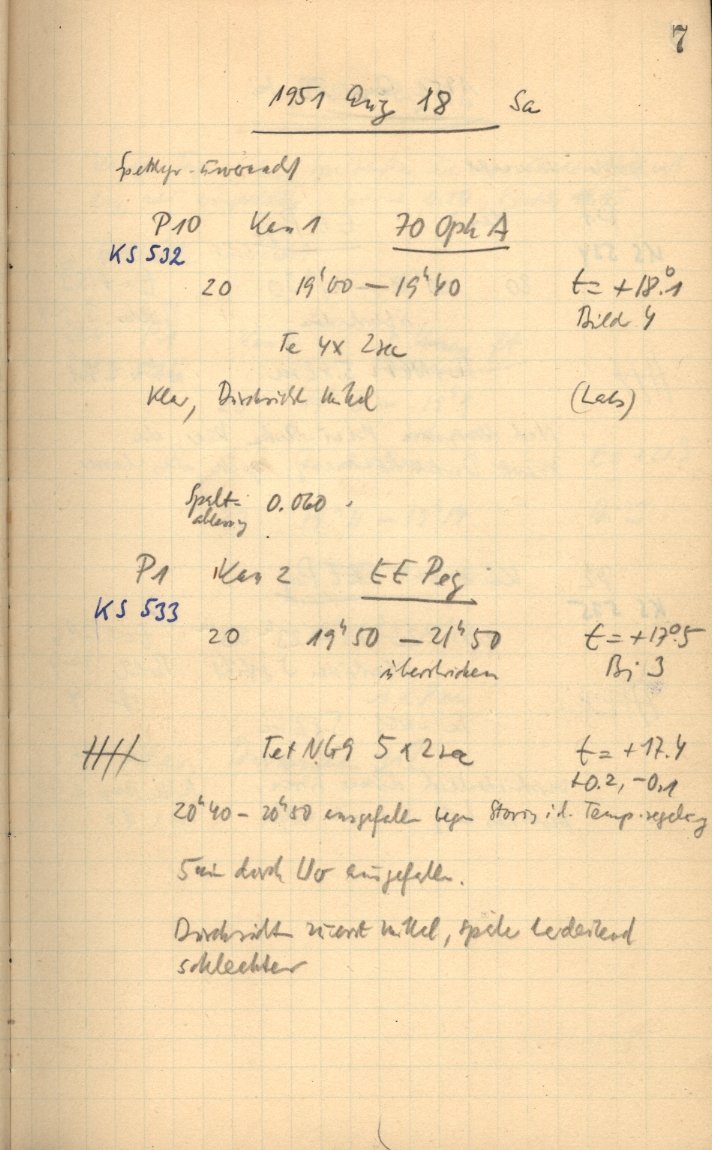 7
1951 Aug 18 Sa
P10 Kam 1 70 Oph A
KS 532
20 19ʰ00 — 19ʰ40 t = +18°.1
Bild 4
Te 4x 2sec
Klar, Durchsicht mittel (Labs)
Spalt-
ablesung 0.060
P1 Kam 2 EE Peg
KS 533
20 19ʰ50 — 21ʰ50 t = +17°.5
überstrichen Bi 3
Te + NG9 5 x 2sec t = +17.4
+0.2, -0.1
20ʰ40 - 20ʰ50 ausgefallen wegen Störung i.d. Temp.regelung
5 min durch Uo ausgefallen.
Durchsicht zuerst mittel, später bedeutend
schlechter